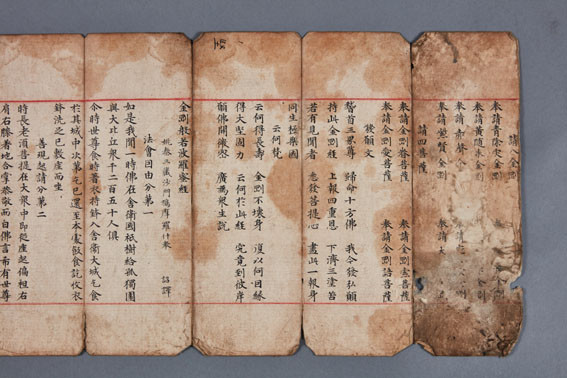 請 金剛
奉請青除災金剛 奉請
奉請黃隨求金剛 奉請 金剛
奉請赤聲 金剛
奉請 賢金剛 奉請大
請四菩薩
奉請金剛眷菩薩 奉請金剛索菩薩
奉請金剛愛菩薩 奉請金剛語菩薩
發願文
稽首三界尊 歸命十方佛 我今發弘願
持此金剛經 上報四重恩 下濟三塗苦
若有見聞者 悉發菩提心 盡此一報身
同生極樂國
云何梵
云何得長壽 金剛不壞身 復以何因緣
得大堅固力 云何於此經 究竟到彼岸
願佛開微密 廣為衆生說
金剛般若波羅蜜經
姚秦三藏法師鳩摩羅什奉 詔譯
法會因由分第一
如是我聞一時佛在舍衛國祇樹給孤獨園
與大比丘衆千二百五十人俱
尒時世尊食時着衣持鉢入舍衛大城乞食
於其城中次第乞已還至本處飯食訖收衣
鉢洗足已敷座而坐
善現起請分第二
時長老須菩提在大衆中即從座起偏袒右
肩右膝着地合掌恭敬而白佛言希有世尊